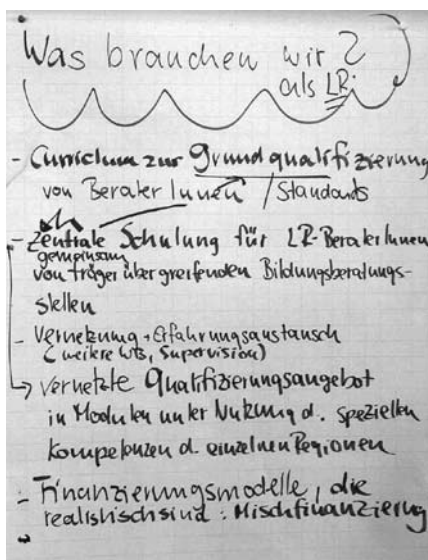 Was brauchen wir?
als LR:
- Curriclum zur Grundqualifizierung
von BeraterInnen / Standards
- Zentrale Schulung für LR-BeraterInnen
gemeinsam
von trägerübergreifenden Bildungsberatungs-
stellen
- Vernetzung + Erfahrungsaustausch
(weitere WS, Supervision)
→ Vernetzte Qualifizierungsangebot
in Modulen unter Nutzung d. speziellen
Kompetenzen d. einzelnen Regionen
- Finanzierungsmodelle, die
realistisch sind: Mischfinanzierung